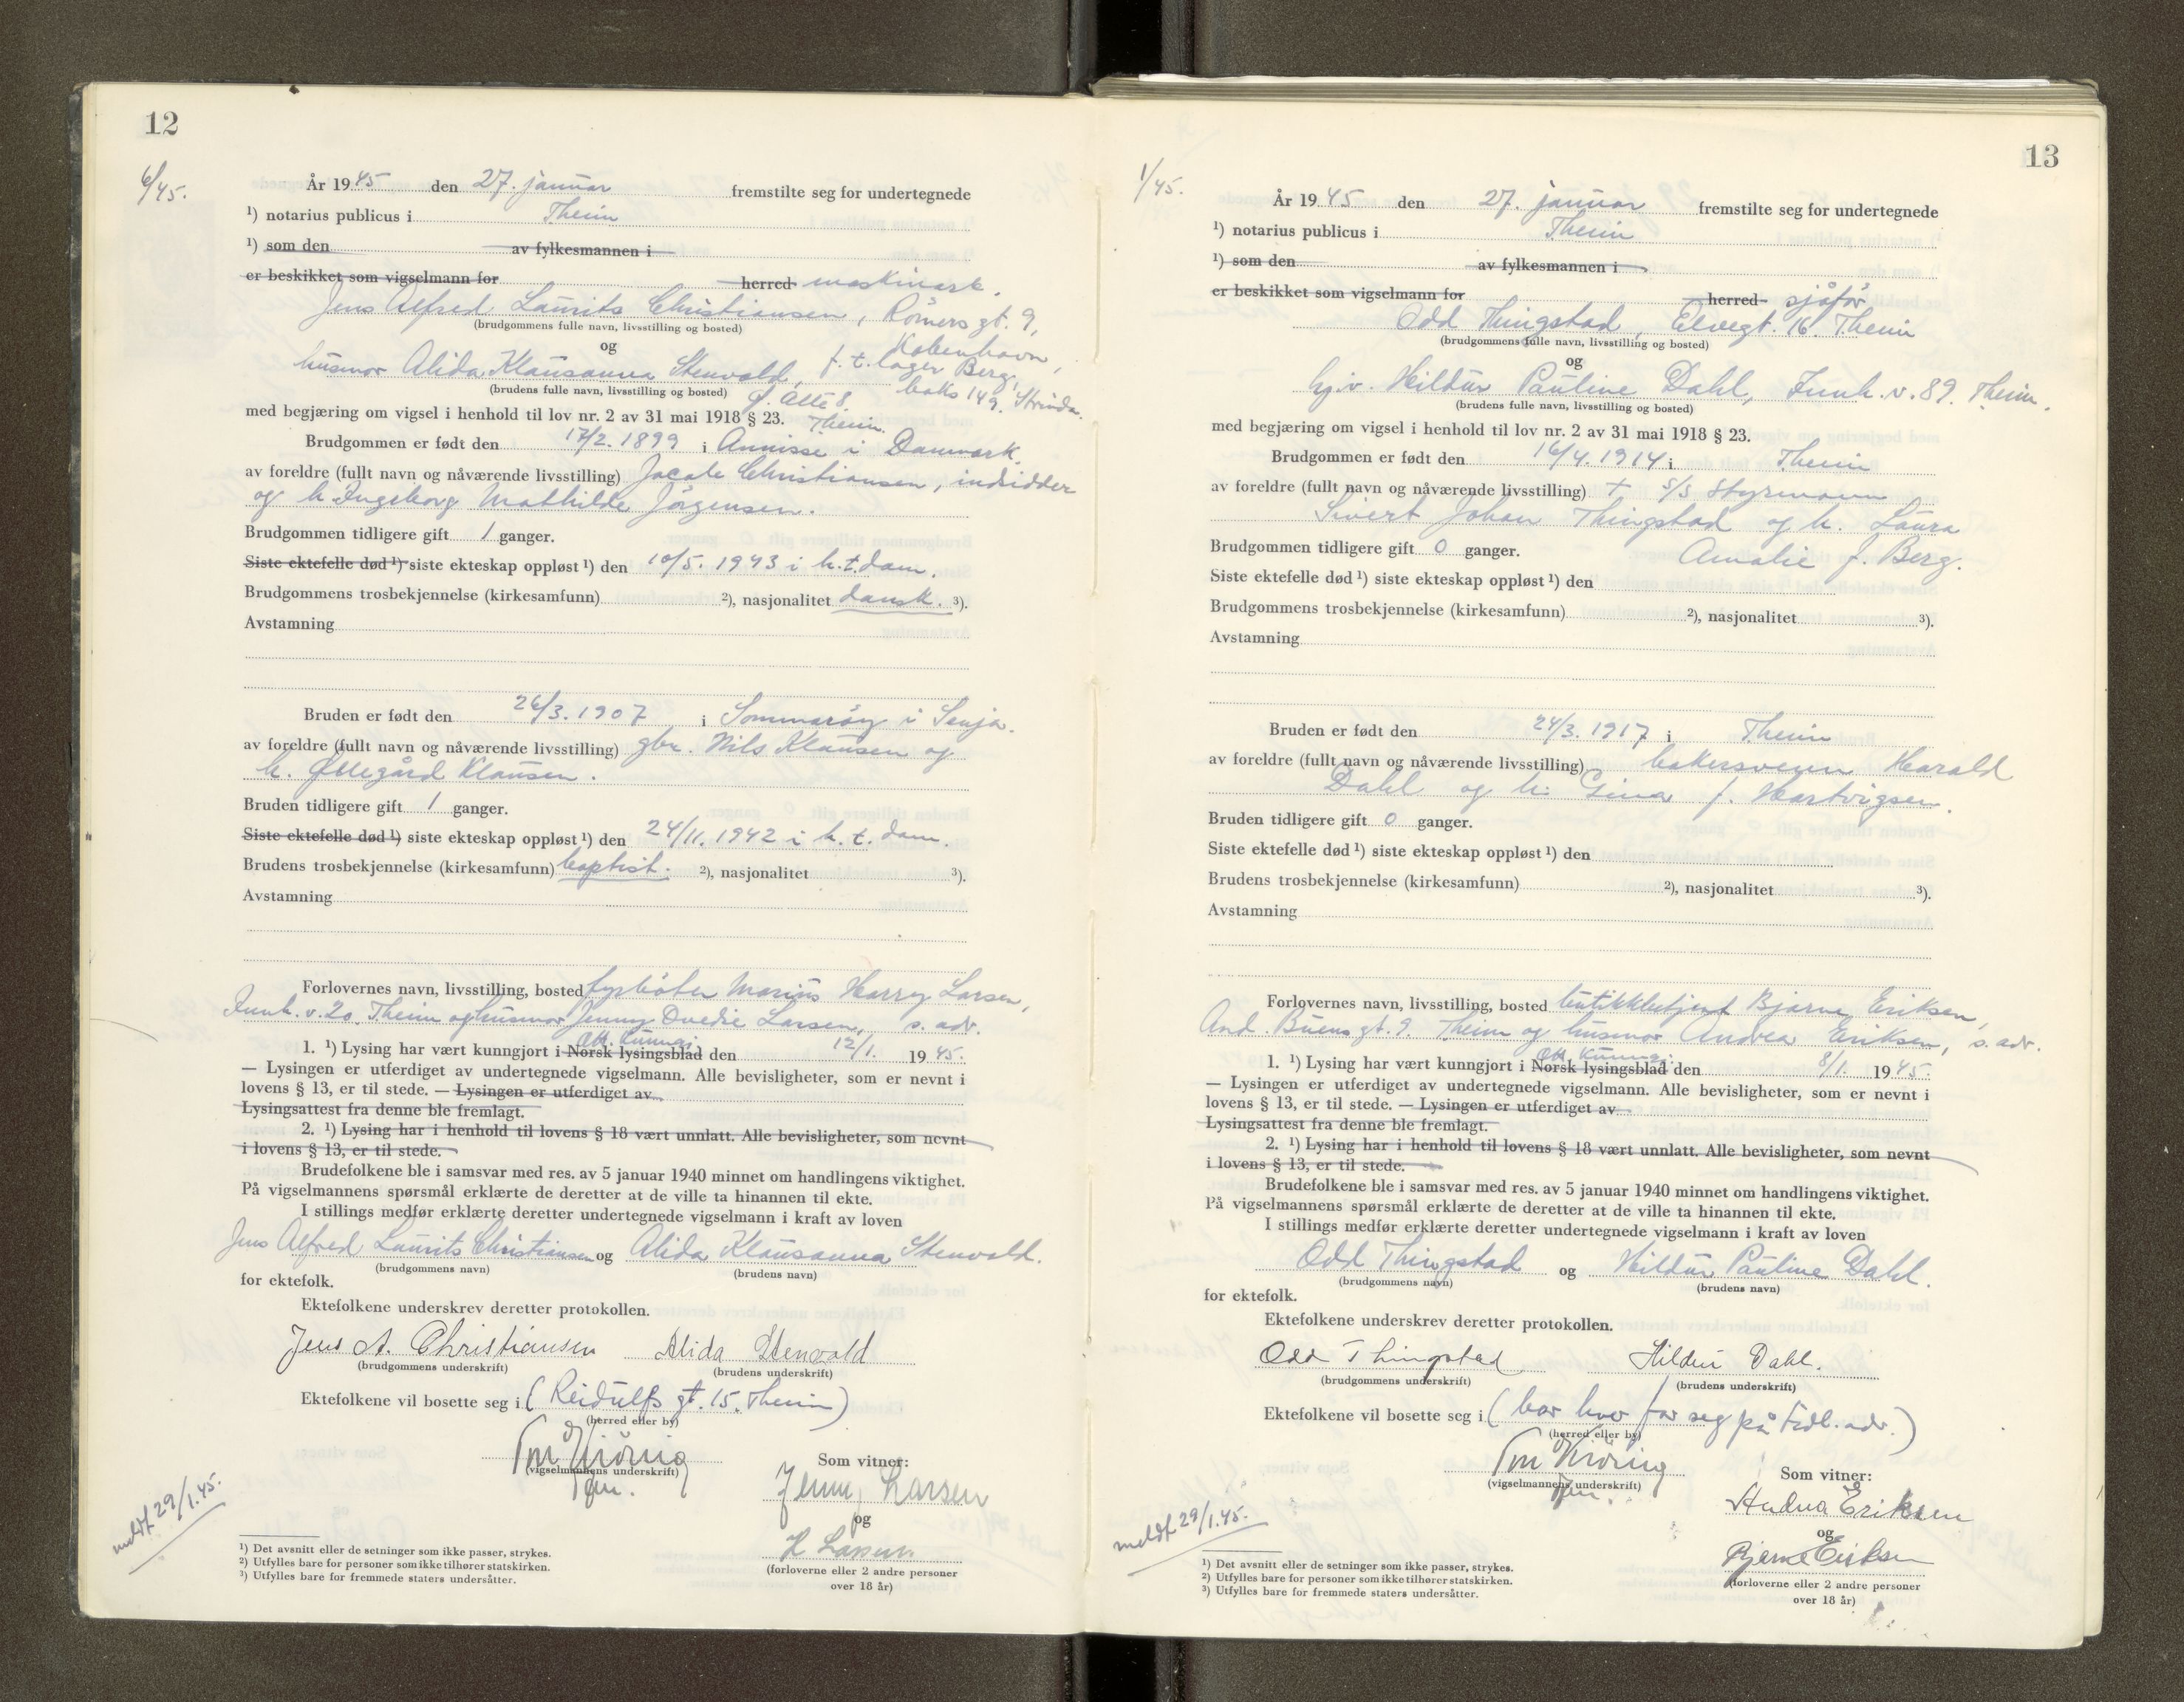 12
6/45.
År 1945 den 27. januar fremstilte seg for undertegnede
¹) notarius publicus i Theim
¹) som den av fylkesmannen i
er beskikket som vigselmann for herred maskinark.
Jens Alfred Laurits Christiansen, Römers gt. 9,
(brudgommens fulle navn, livsstilling og bosted)
København,
og
f. t. lager Berg,
husmor Alida Klausanna Stenvold,
boks 149. Strinda.
(brudens fulle navn, livsstilling og bosted)
med begjæring om vigsel i henhold til lov nr. 2 av 31 mai 1918 § 23. Theim.
Brudgommen er født den 17/2. 1899 i Annisse i Danmark.
av foreldre (fullt navn og nåværende livsstilling) Jacob Christiansen, indsidder
og h. Ingeborg Mathilde Jörgensen.
Brudgommen tidligere gift 1 ganger.
Siste ektefelle død ¹) siste ekteskap oppløst ¹) den 10/5. 1943 i h.t. dom.
Brudgommens trosbekjennelse (kirkesamfunn) ²), nasjonalitet dansk. ³).
Avstamning
Bruden er født den 26/3. 1907 i Sommaröy i Senja.
av foreldre (fullt navn og nåværende livsstilling) gbr. Nils Klausen og
h. Øllegård Klausen.
Bruden tidligere gift 1 ganger.
Siste ektefelle død ¹) siste ekteskap oppløst ¹) den 24/11. 1942 i h. t. dom.
Brudens trosbekjennelse (kirkesamfunn) baptist. ²), nasjonalitet ³).
Avstamning
Forlovernes navn, livsstilling, bosted fyrböter Marius Harry Larsen,
Innh. v. 20. Theim og husmor Jenny Larsen, s. adr.
Off. kunngj.
1. ¹) Lysing har vært kunngjort i Norsk lysingsblad den 12/1. 1945.
— Lysingen er utferdiget av undertegnede vigselmann. Alle bevisligheter, som er nevnt i
lovens § 13, er til stede. — Lysingen er utferdiget av
Lysingsattest fra denne ble fremlagt.
2. ¹) Lysing har i henhold til lovens § 18 vært unnlatt. Alle bevisligheter, som nevnt
i lovens § 13, er til stede.
Brudefolkene ble i samsvar med res. av 5 januar 1940 minnet om handlingens viktighet.
På vigselmannens spørsmål erklærte de deretter at de ville ta hinannen til ekte.
I stillings medfør erklærte deretter undertegnede vigselmann i kraft av loven
Jens Alfred Laurits Christiansen og Alida Klausanna Stenvold.
(brudgommens navn) (brudens navn)
for ektefolk.
Ektefolkene underskrev deretter protokollen.
Jens A. Christiansen Alida Stenvold
(brudgommens underskrift) (brudens underskrift)
Ektefolkene vil bosette seg i (Reidulfs gt. 15. Theim)
(herred eller by)
(vigselmannens underskrift)
Som vitner:
Jenny Larsen
og
H Larsen
(forloverne eller 2 andre personer
over 18 år)
meldt 29/1.45.
¹) Det avsnitt eller de setninger som ikke passer, strykes.
²) Utfylles bare for personer som ikke tilhører statskirken.
³) Utfylles bare for fremmede staters undersåtter.
13
1/45.
År 1945 den 27. januar fremstilte seg for undertegnede
¹) notarius publicus i Theim
¹) som den av fylkesmannen i
er beskikket som vigselmann for herred sjåför
Odd Thingstad, Elvegt. 16. Theim
(brudgommens fulle navn, livsstilling og bosted)
og
hjv. Hildur Pauline Dahl, Innh. v. 89. Theim.
(brudens fulle navn, livsstilling og bosted)
med begjæring om vigsel i henhold til lov nr. 2 av 31 mai 1918 § 23.
Brudgommen er født den 16/4. 1914 i Theim
av foreldre (fullt navn og nåværende livsstilling) + s/s styrmann
Sivert Johan Thingstad og h. Laura
Amalie f. Berg.
Brudgommen tidligere gift 0 ganger.
Siste ektefelle død ¹) siste ekteskap oppløst ¹) den
Brudgommens trosbekjennelse (kirkesamfunn) ²), nasjonalitet ³).
Avstamning
Bruden er født den 24/3. 1917 i Theim
av foreldre (fullt navn og nåværende livsstilling) bakersvenn Harald
Dahl og h. Gina f. Hartvigsen.
Bruden tidligere gift 0 ganger.
Siste ektefelle død ¹) siste ekteskap oppløst ¹) den
Brudens trosbekjennelse (kirkesamfunn) ²), nasjonalitet ³).
Avstamning
Forlovernes navn, livsstilling, bosted butikkbetjent Bjarne Eriksen,
And. Buens gt. 9. Theim og husmor Andrea Eriksen, s. adr.
Off. kunngj.
1. ¹) Lysing har vært kunngjort i Norsk lysingsblad den 8/1. 1945.
— Lysingen er utferdiget av undertegnede vigselmann. Alle bevisligheter, som er nevnt i
lovens § 13, er til stede. — Lysingen er utferdiget av
Lysingsattest fra denne ble fremlagt.
2. ¹) Lysing har i henhold til lovens § 18 vært unnlatt. Alle bevisligheter, som nevnt
i lovens § 13, er til stede.
Brudefolkene ble i samsvar med res. av 5 januar 1940 minnet om handlingens viktighet.
På vigselmannens spørsmål erklærte de deretter at de ville ta hinannen til ekte.
I stillings medfør erklærte deretter undertegnede vigselmann i kraft av loven
Odd Thingstad og Hildur Pauline Dahl.
(brudgommens navn) (brudens navn)
for ektefolk.
Ektefolkene underskrev deretter protokollen.
Odd Thingstad Hildur Dahl.
(brudgommens underskrift) (brudens underskrift)
Ektefolkene vil bosette seg i (bor hver for seg på tidl. adr.)
(herred eller by)
(vigselmannens underskrift)
Som vitner:
Andrea Eriksen
og
Bjarne Eriksen
(forloverne eller 2 andre personer
over 18 år)
meldt 29/1.45.
¹) Det avsnitt eller de setninger som ikke passer, strykes.
²) Utfylles bare for personer som ikke tilhører statskirken.
³) Utfylles bare for fremmede staters undersåtter.